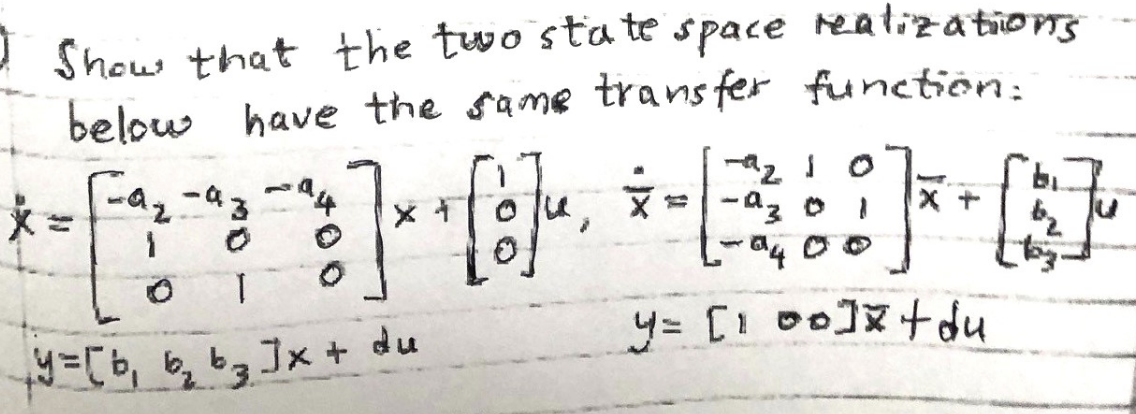 Show that the two state space realizations
below have the same transfer function:
ẋ = [-a₂ -a₃ -a₄; 1 0 0; 0 1 0] x + [1; 0; 0] u, x̄̇ = [-a₂ 1 0; -a₃ 0 1; -a₄ 0 0] x̄ + [b₁; b₂; b₃] u
y = [b₁ b₂ b₃] x + du y = [1 0 0] x̄ + du